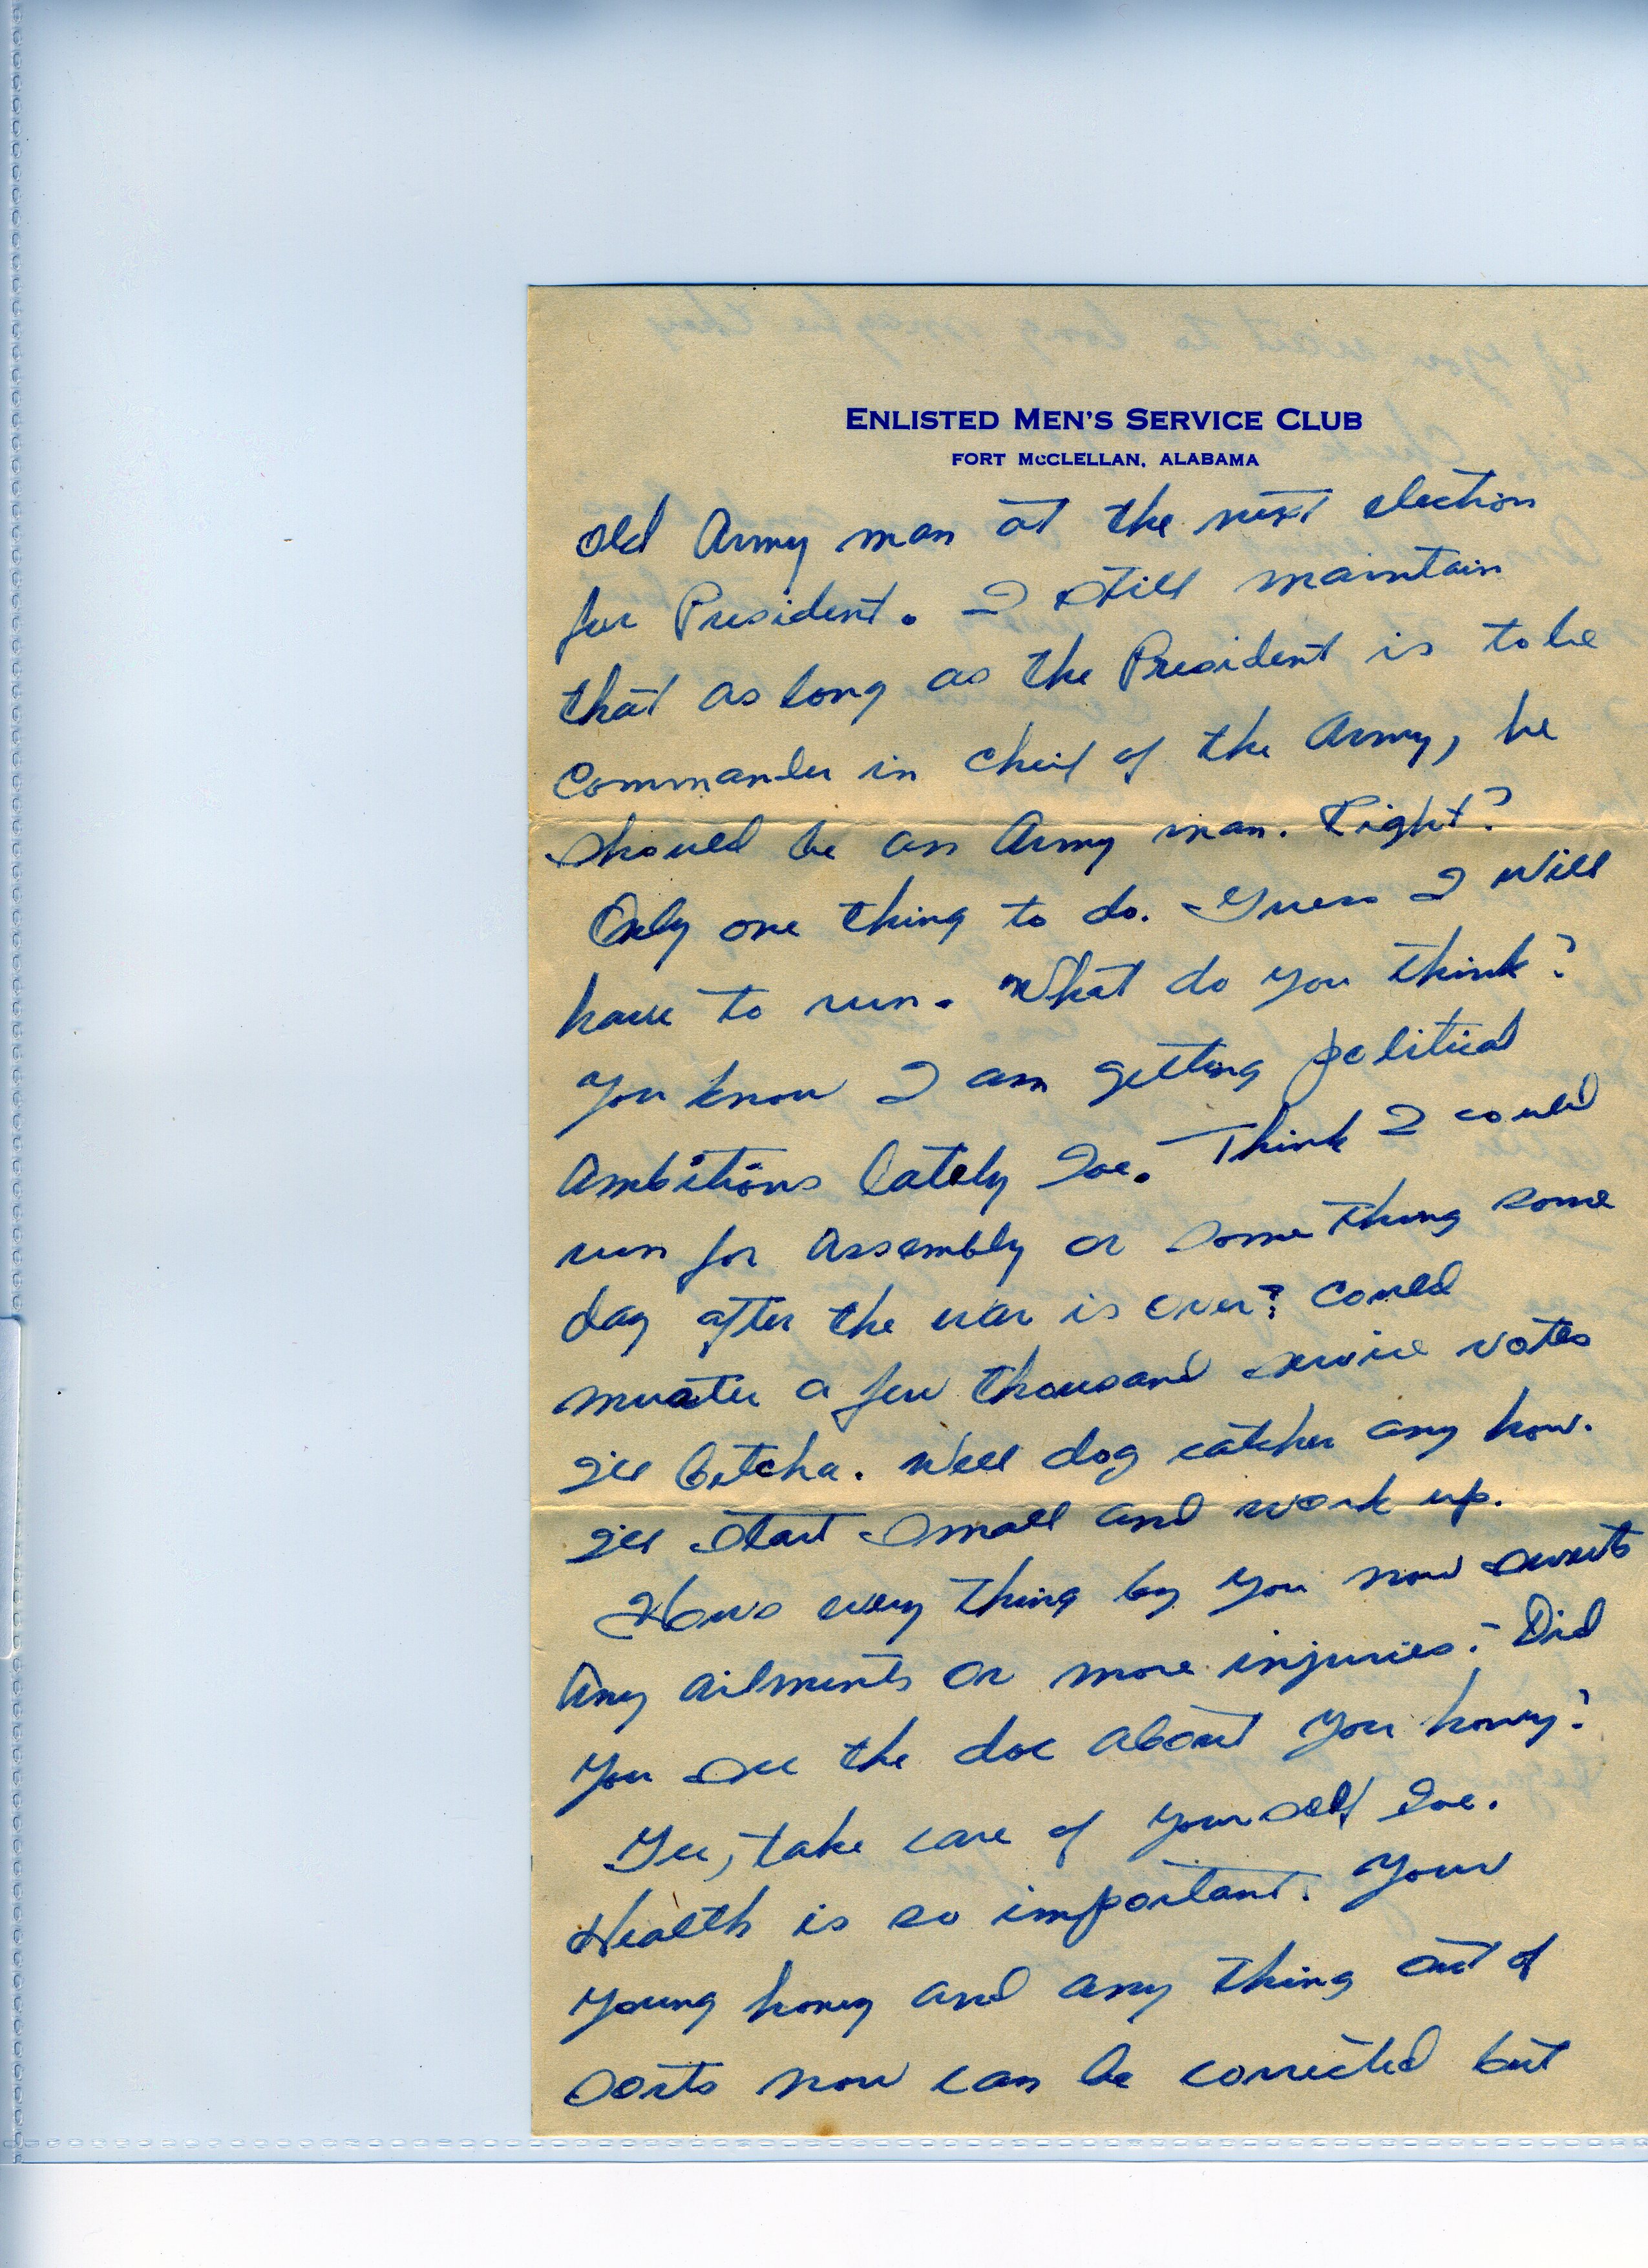 ENLISTED MEN'S SERVICE CLUB
FORT McCLELLAN, ALABAMA
old Army man at the next election
for President. I still maintain
that as long as the President is to be
Commander in cheif of the Army, he
should be an Army man. Right?
Only one thing to do. Guess I will
have to run. What do you think?
You know I am getting political
Ambitions lately Joe. Think I could
run for Assembly or some thing some
day after the war is over? Could
muster a few thousand service votes
I'll betcha. Well dog catcher any how.
I'll start small and work up.
Hows every thing by you now sweets
Any ailments or more injuries? Did
you see the doc about you honey?
Gee, take care of yourself Joe.
Health is so important. Your
young honey and any thing out of
sorts now can be corrected but